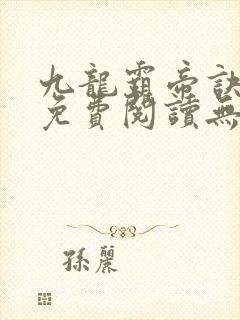 九龍霸帝訣
免費閱讀無
孫麗